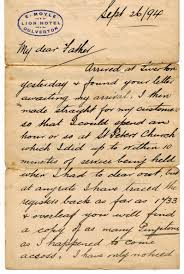 E. MOYLE
LION HOTEL
DULVERTON
Sept 26/94
My dear Father
Arrived at Tiverton
yesterday & found your letter
awaiting my arrival. I then
made straight for my customers
so that I could spend an
hour or so at St Peters Church
which I did up to within 10
minutes of service being held
when I had to clear out, but
at any rate I have traced the
register back as far as 1733
& overleaf you will find
a copy of as many Simpsons
as I happened to come
across. I have only noticed